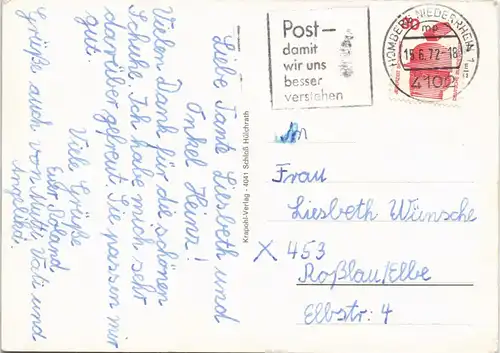 Liebe Tante Liesbeth und
Onkel Heinz!
Vielen Dank für die schönen
Schuhe. Ich habe mich sehr
darüber gefreut. Sie passen mir
gut.
Viele Grüße
Euer Roland.
Grüße auch von Mutti, Vati und
Angelika.
Krapohl-Verlag · 4041 Schloß Hülchrath
Post-
damit
wir uns
besser
verstehen
HOMBERG NIEDERRHEIN 1
mp
15.6.72-18
4102
Frau
Liesbeth Wünsche
X 453
Roßlau/Elbe
Elbstr. 4